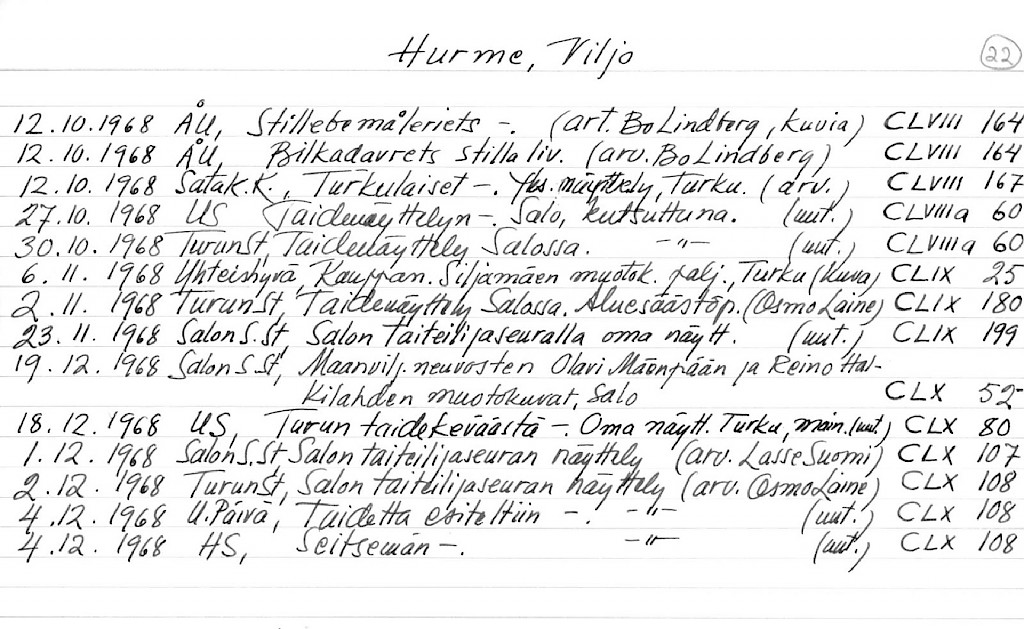 Hurme, Viljo 22
12.10.1968 ÅU, Stillebemåleriets -. (art. Bo Lindberg, kuvia) CLVIII 164
12.10.1968 ÅU, Bilkadavrets stilla liv. (arv. Bo Lindberg) CLVIII 164
12.10.1968 Satak.K., Turkulaiset -. Yks. näyttely, Turku. (arv.) CLVIII 167
27.10. 1968 US Taidenäyttelyn -. Salo, kutsuttuna. (uut.) CLVIIIa 60
30.10.1968 TurunSt, Taidenäyttely Salossa. -"- (uut.) CLVIIIa 60
6.11. 1968 Yhteishyvä, Kauppan. Siljamäen muotok. palj., Turku (kuva) CLIX 25
2.11. 1968 TurunSt, Taidenäyttely Salossa. Aluesäästöp. (Osmo Laine) CLIX 180
23.11.1968 SalonS.St, Salon taiteilijaseuralla oma näytt. (uut.) CLIX 199
19.12.1968 SalonS.St, Maanvilj.neuvosten Olavi Mäenpään ja Reino Hal-
kilahden muotokuvat, Salo CLX 52
18.12.1968 US, Turun taidekeväästä -. Oma näytt. Turku, main. (uut.) CLX 80
1.12.1968 SalonS.St Salon taiteilijaseuran näyttely (arv. Lasse Suomi) CLX 107
2.12.1968 TurunSt, Salon taiteilijaseuran näyttely (arv. Osmo Laine) CLX 108
4.12.1968 U.Päivä, Taidetta esiteltiin -. -"- (uut.) CLX 108
4.12.1968 HS, Seitsemän -. -"- (uut.) CLX 108